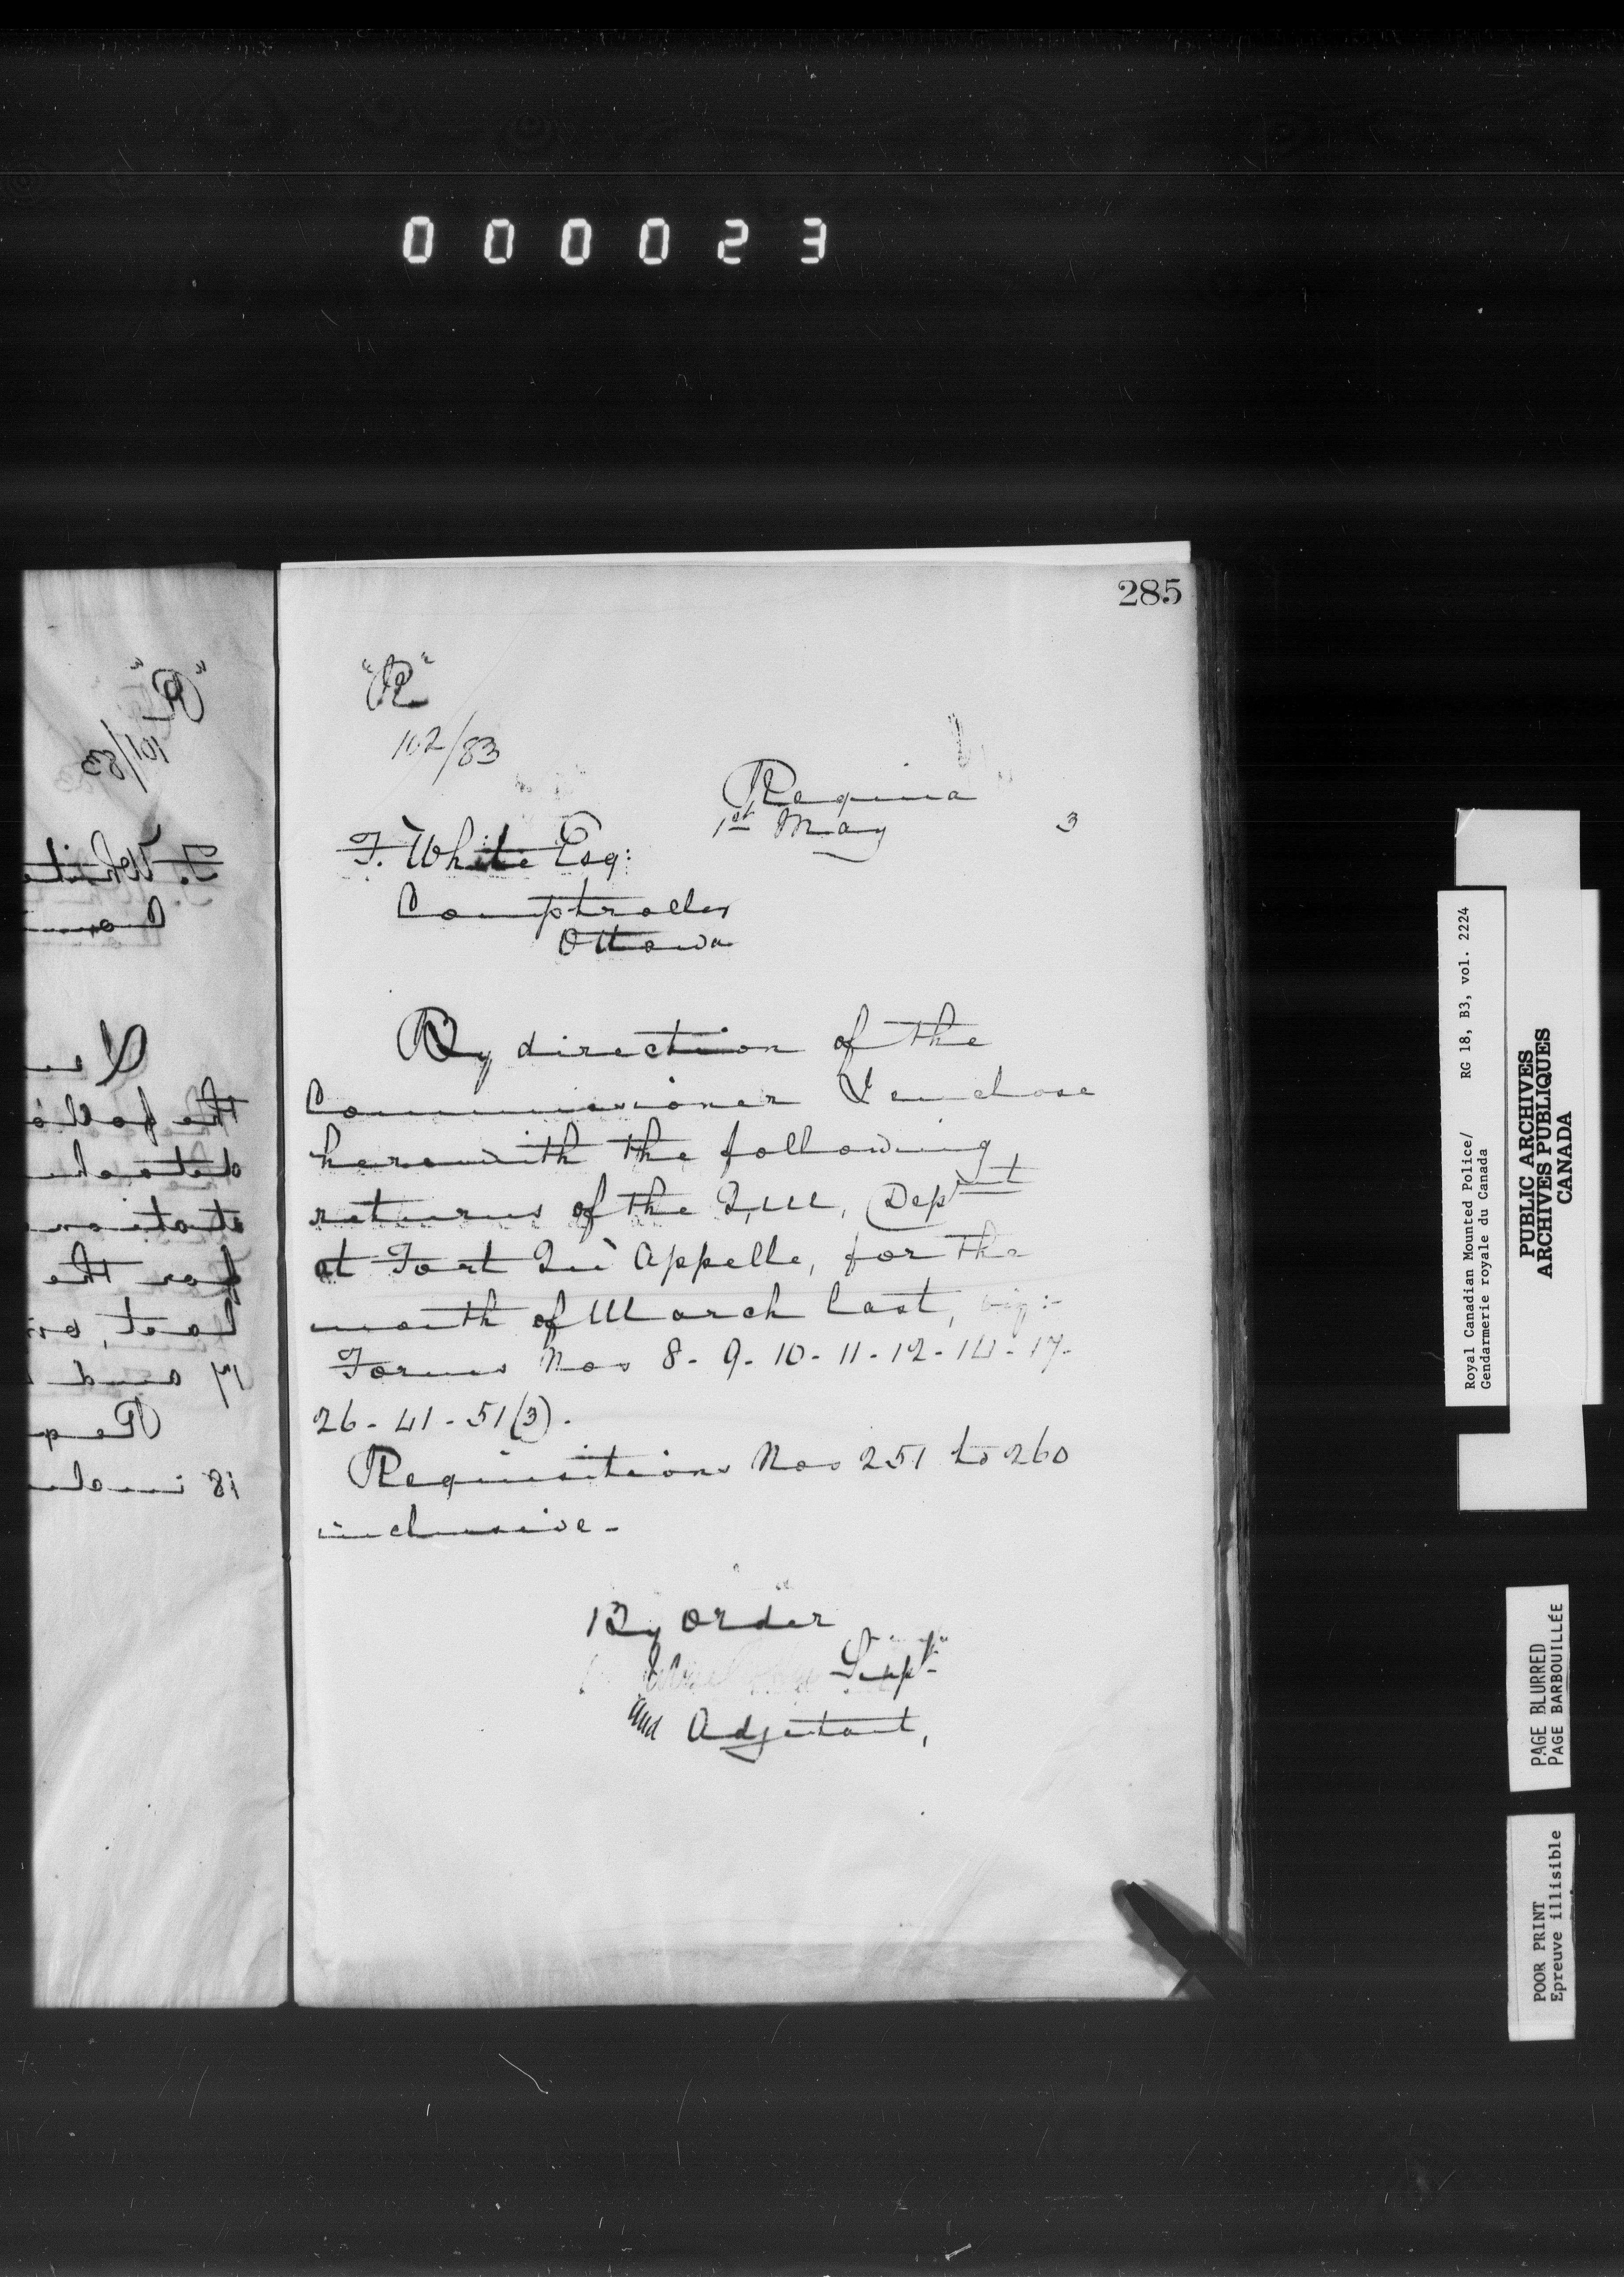 000023
285
"R"
102/83
Regina
1st May 3
F. White Esq:
Comptroller
Ottawa
By direction of the
Commissioner I enclose
herewith the following
returns of the Q.M. Deptmt
at Fort Qu'Appelle, for the
month of March last, viz:-
Forms Nos 8-9-10-11-12-14-17-
26-41-51(3).
Requisitions Nos 251 to 260
inclusive-
By order
Supt
and Adjutant,
"R"
101/83
F. White
Com
the follo
for the
last,
17 and
Req
18 inclu
Royal Canadian Mounted Police/ RG 18, B3, vol. 2224
Gendarmerie royale du Canada
PUBLIC ARCHIVES
ARCHIVES PUBLIQUES
CANADA
PAGE BLURRED
PAGE BARBOUILLÉE
POOR PRINT
Epreuve illisible